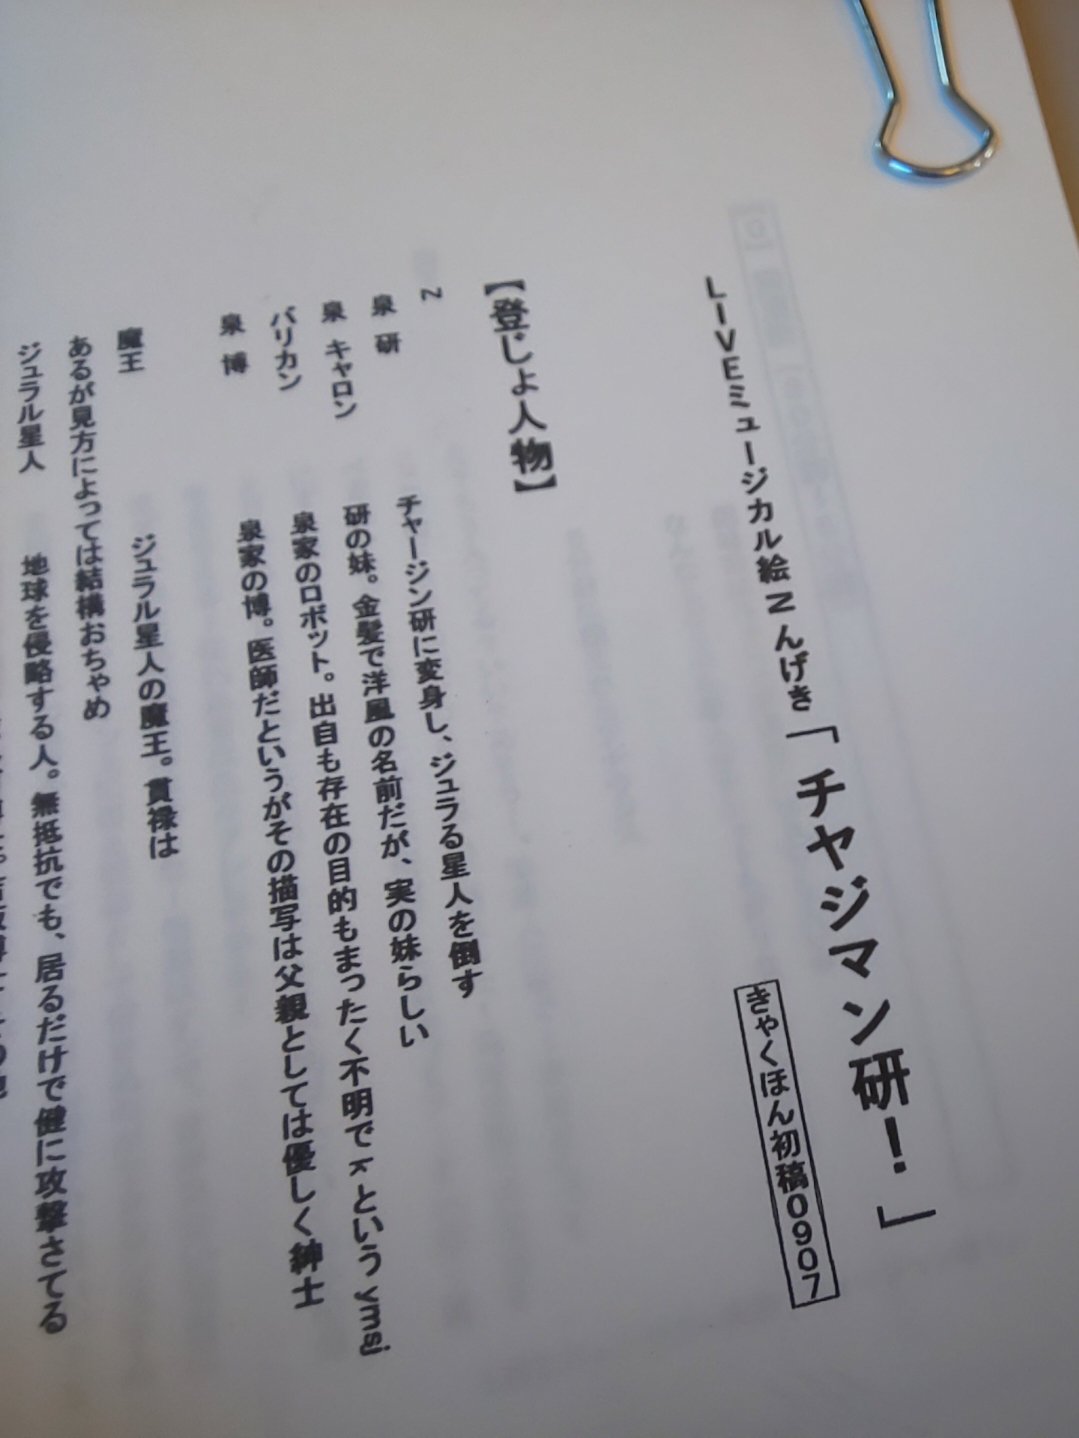 LIVEミュージカル絵Nんげき「チャジマン研！」
きゃくほん初稿0907
【登じょ人物】
N
泉 研　チャージン研に変身し、ジュラる星人を倒す
泉 キャロン　研の妹。金髪で洋風の名前だが、実の妹らしい
バリカン　泉家のロボット。出自も存在の目的もまったく不明でkというymsj
泉 博　泉家の博。医師だというがその描写は父親としては優しく紳士
魔王　ジュラル星人の魔王。貫禄は
あるが見方によっては結構おちゃめ
ジュラル星人　地球を侵略する人。無抵抗でも、居るだけで健に攻撃さてる